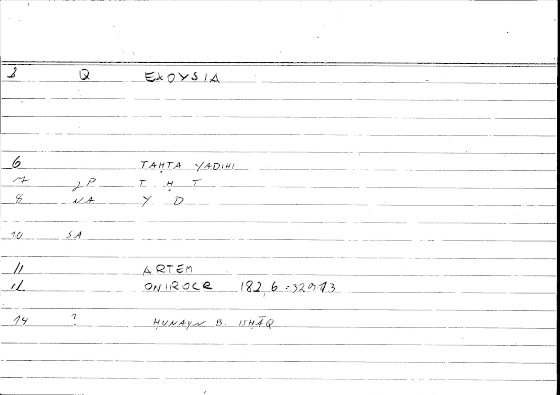 8 Q EXOYSIA
6 TAḤTA YADIHI
7 2P T Ḥ T
8 NA Y D
10 SA
11 ARTEM
12 ONIROCR 182,6:329
14 ? ḤUNAYN B. ISḤĀQ